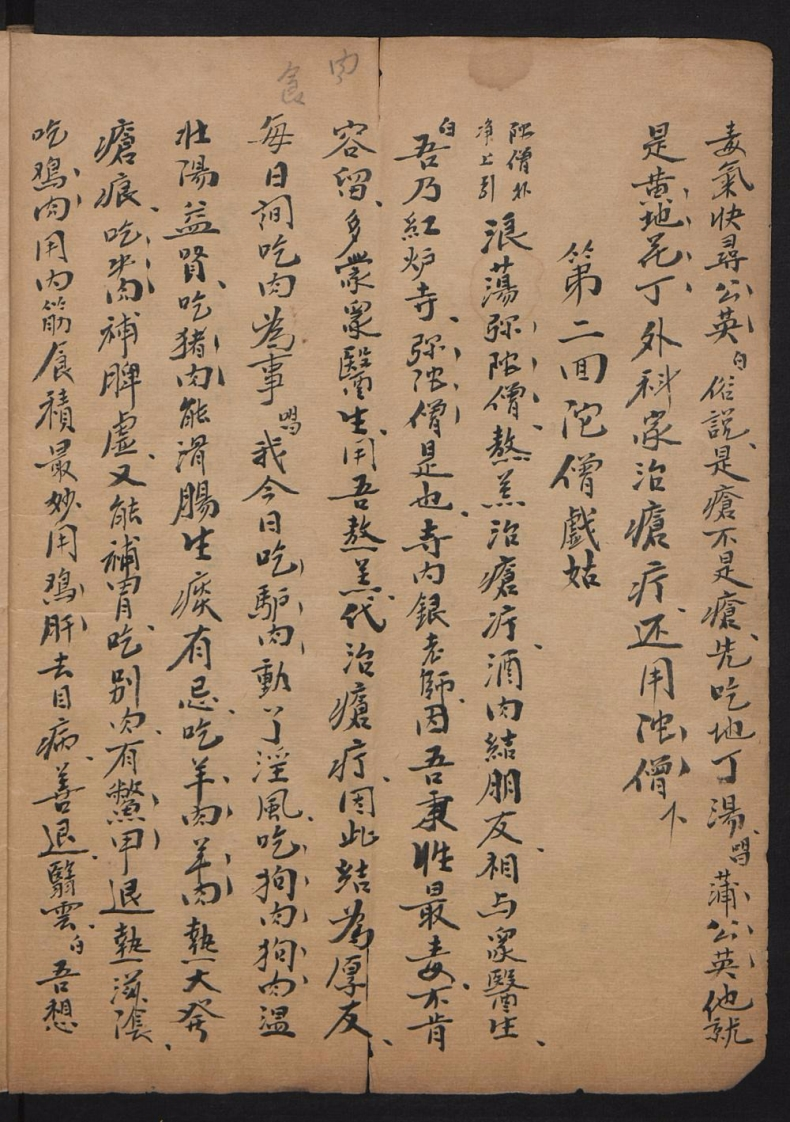 毒氣快尋公英白俗説是瘡不是瘡先吃地丁湯唱蒲公英他就
是黄地花丁外科家治瘡疔还用陀僧下
第二回陀僧戲姑
陀僧扑
净上引
浪蕩弥陀僧熬羔治瘡疔酒肉結朋友相与衆醫生
白吾乃紅炉寺弥陀僧是也寺内銀老師因吾秉性最毒不肯
容留多蒙衆醫生用吾熬羔代治瘡疔因此結為厚友
每日間吃肉為事唱我今日吃驴肉動了淫風吃狗肉狗肉温
壮陽益腎吃猪肉能滑腸生痰有忌吃羊肉羊肉熱大発
瘡痕吃肉補脾虛又能補胃吃别肉有鱉甲退熱滋陰
吃鷄肉用内筋食積最妙用鷄肝去目病善退翳雲白吾想
肉
食